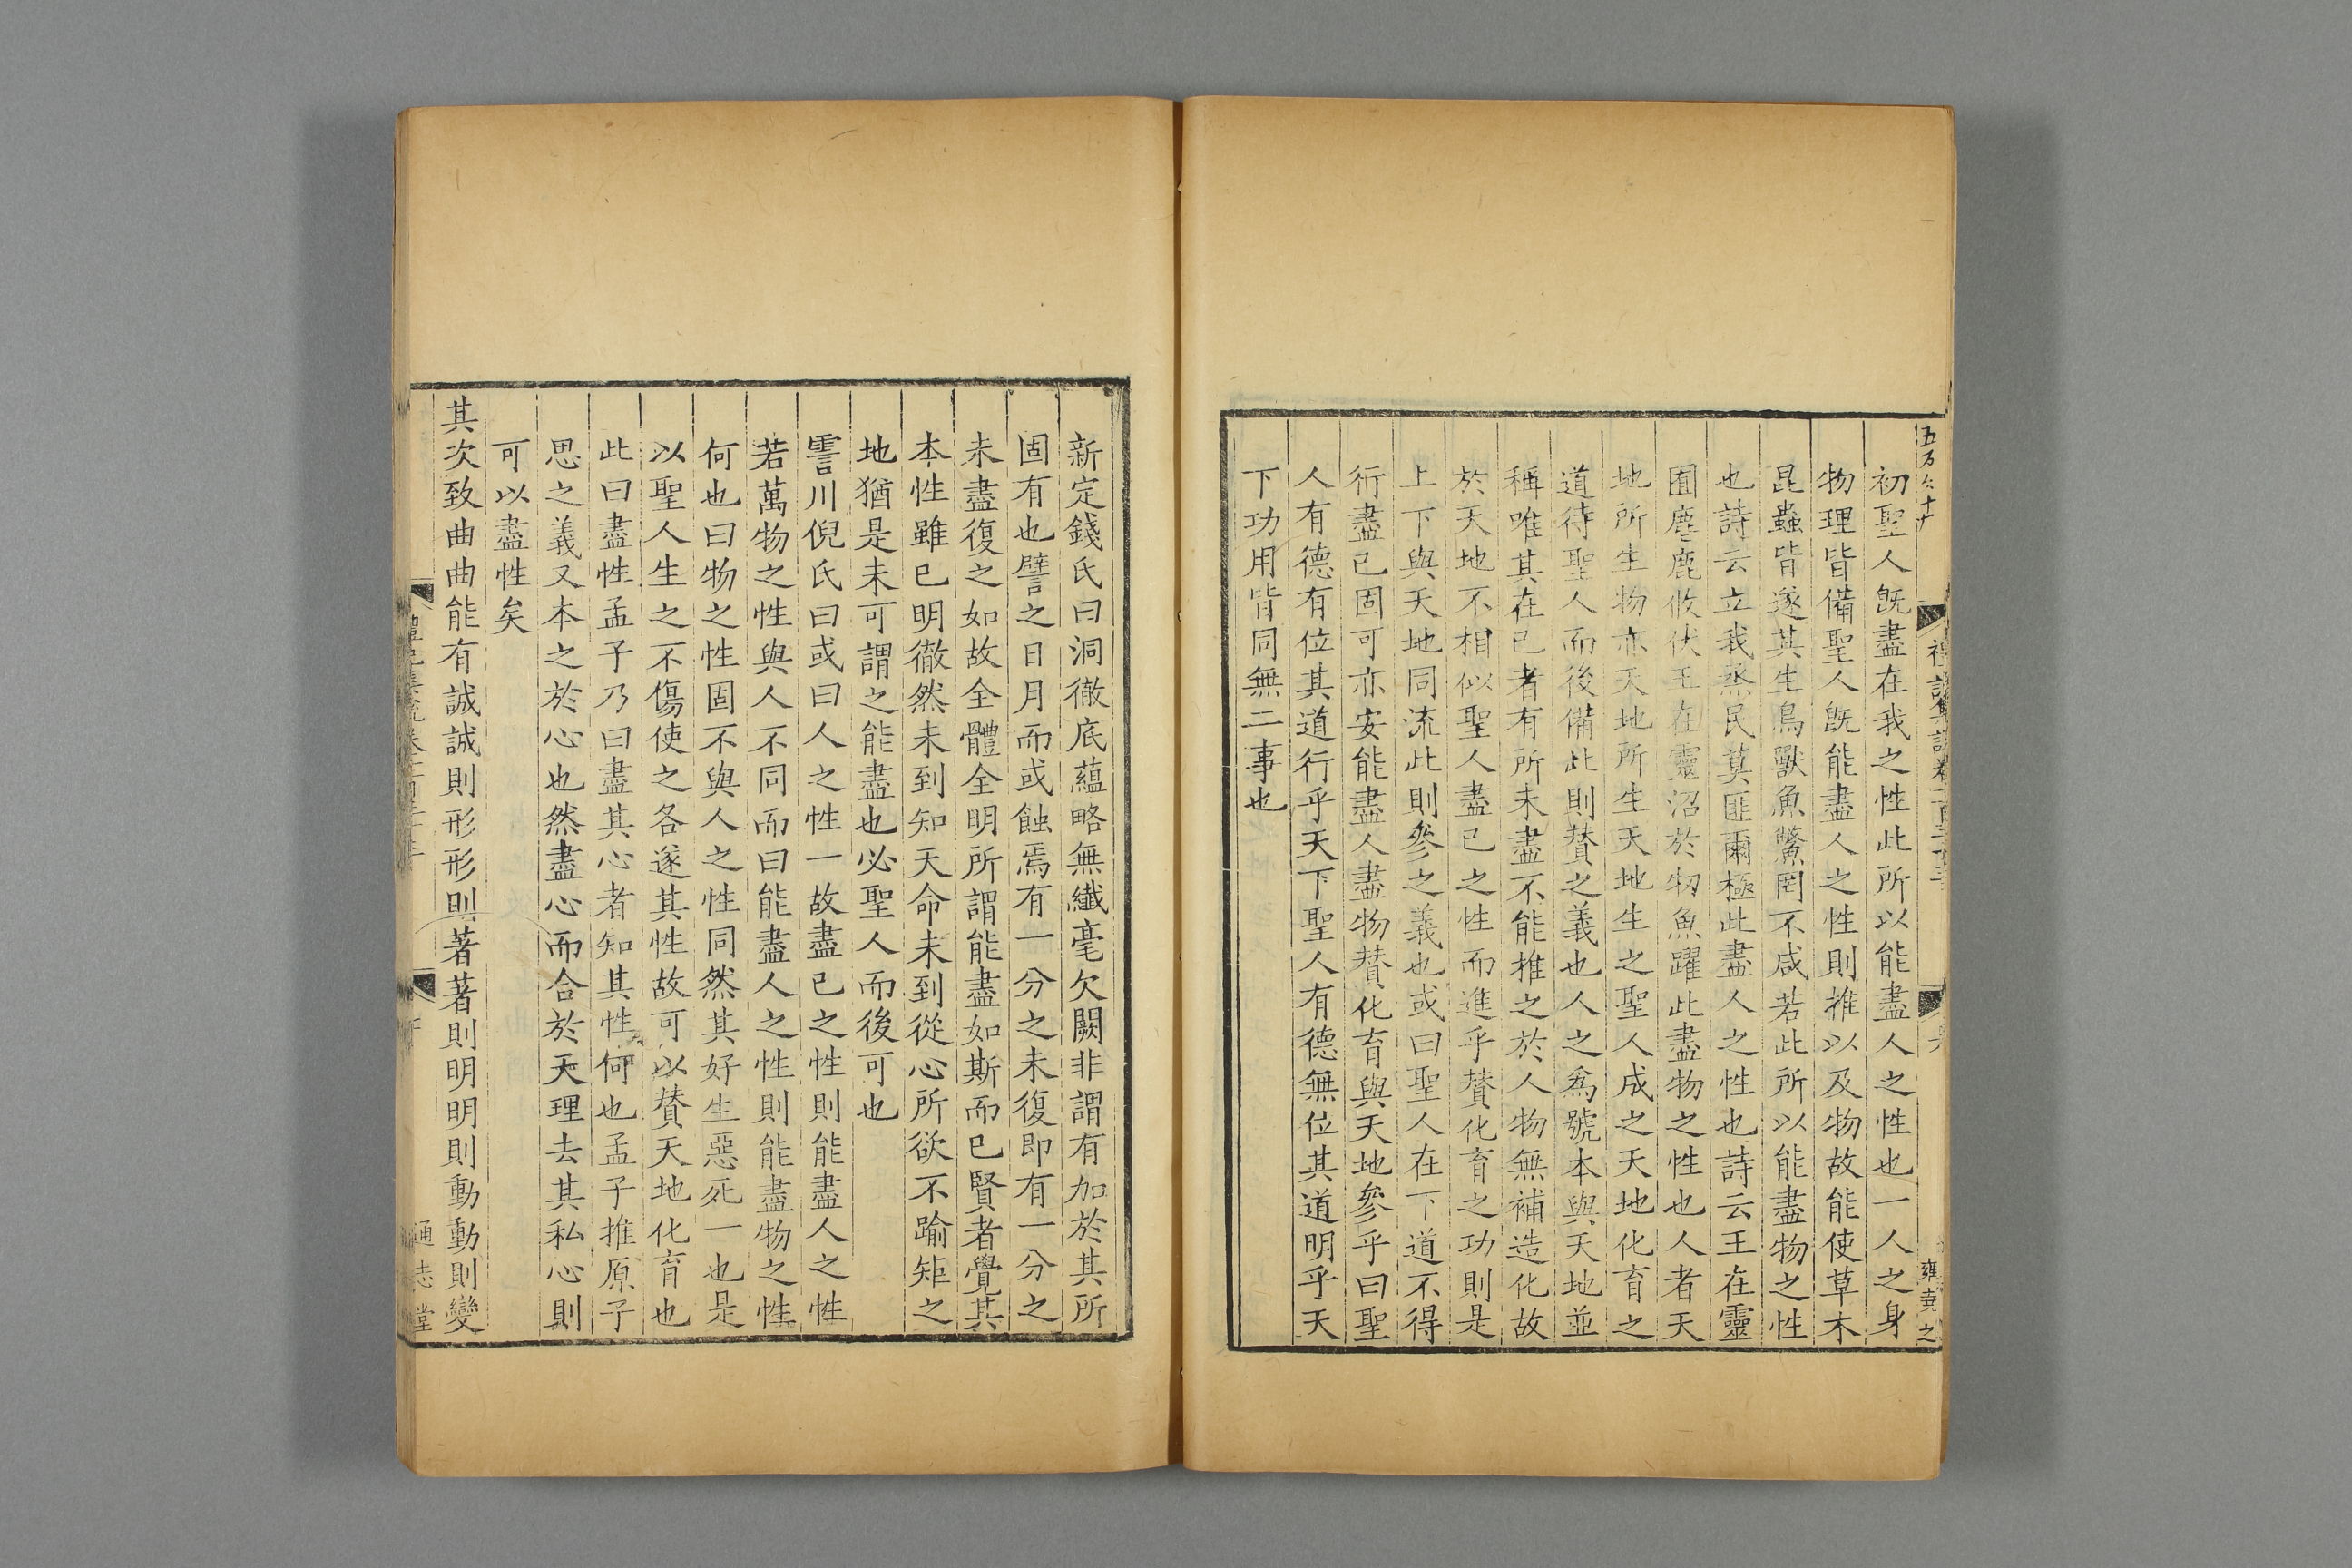 初聖人旣盡在我之性此所以能盡人之性也一人之身
物理皆備聖人旣能盡人之性則推以及物故能使草木
昆蟲皆遂其生鳥獸魚鱉罔不咸若此所以能盡物之性
也詩云立我烝民莫匪爾極此盡人之性也詩云王在靈
囿麀鹿攸伏王在靈沼於牣魚躍此盡物之性也人者天
地所生物亦天地所生天地生之聖人成之天地化育之
道待聖人而後備此則賛之義也人之爲號本與天地並
稱唯其在已者有所未盡不能推之於人物無補造化故
於天地不相似聖人盡已之性而進乎賛化育之功則是
上下與天地同流此則參之義也或曰聖人在下道不得
行盡已固可亦安能盡人盡物賛化育與天地參乎曰聖
人有德有位其道行乎天下聖人有德無位其道明乎天
下功用皆同無二事也
新定錢氏曰洞徹底蘊略無纖毫欠闕非謂有加於其所
固有也譬之日月而或蝕焉有一分之未復即有一分之
未盡復之如故全體全明所謂能盡如斯而已賢者覺其
本性雖已明徹然未到知天命未到從心所欲不踰矩之
地猶是未可謂之能盡也必聖人而後可也
霅川倪氏曰或曰人之性一故盡已之性則能盡人之性
若萬物之性與人不同而曰能盡人之性則能盡物之性
何也曰物之性固不與人之性同然其好生惡死一也是
以聖人生之不傷使之各遂其性故可以賛天地化育也
此曰盡性孟子乃曰盡其心者知其性何也孟子推原子
思之義又本之於心也然盡心而合於天理去其私心則
可以盡性矣
其次致曲曲能有誠誠則形形則著著則明明則動動則變
通志堂